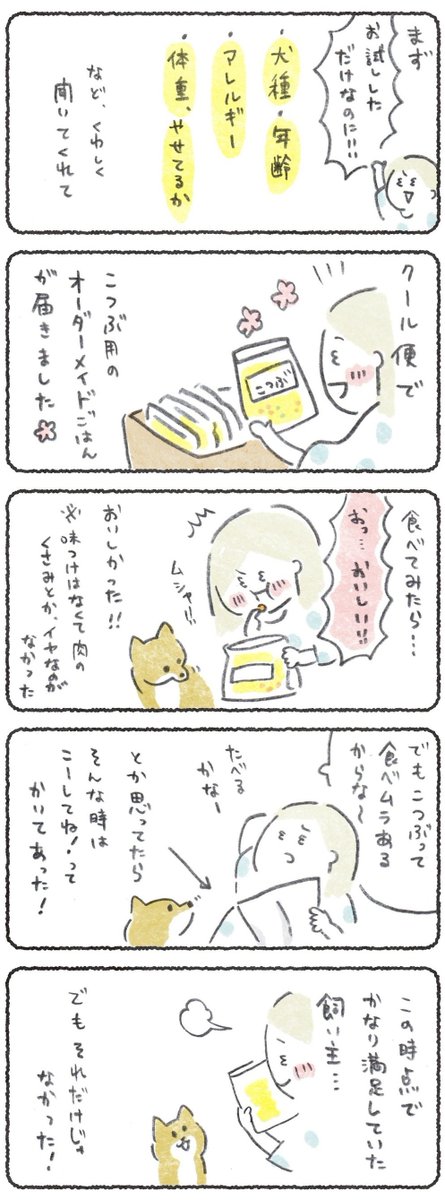 まず
お試しした
だけなのに!!!
・犬種・年齢
・アレルギー
・体重、やせてるか
など、くわしく
聞いてくれて
クール便で
こつぶ
こつぶ用の
オーダーメイドごはん
が届きました
食べてみたら…
おっ…おいしい!!
ムシャ!!
おいしかった!!
※味つけはなくて肉の
くさみとか、イヤなのが
なかった
でもこつぶって
食べムラある
からな〜
たべる
かなー
とか思ってたら
そんな時は
こーしてね!って
かいてあった!
この時点で
かなり満足していた
飼い主…
でもそれだけじゃ
なかった!